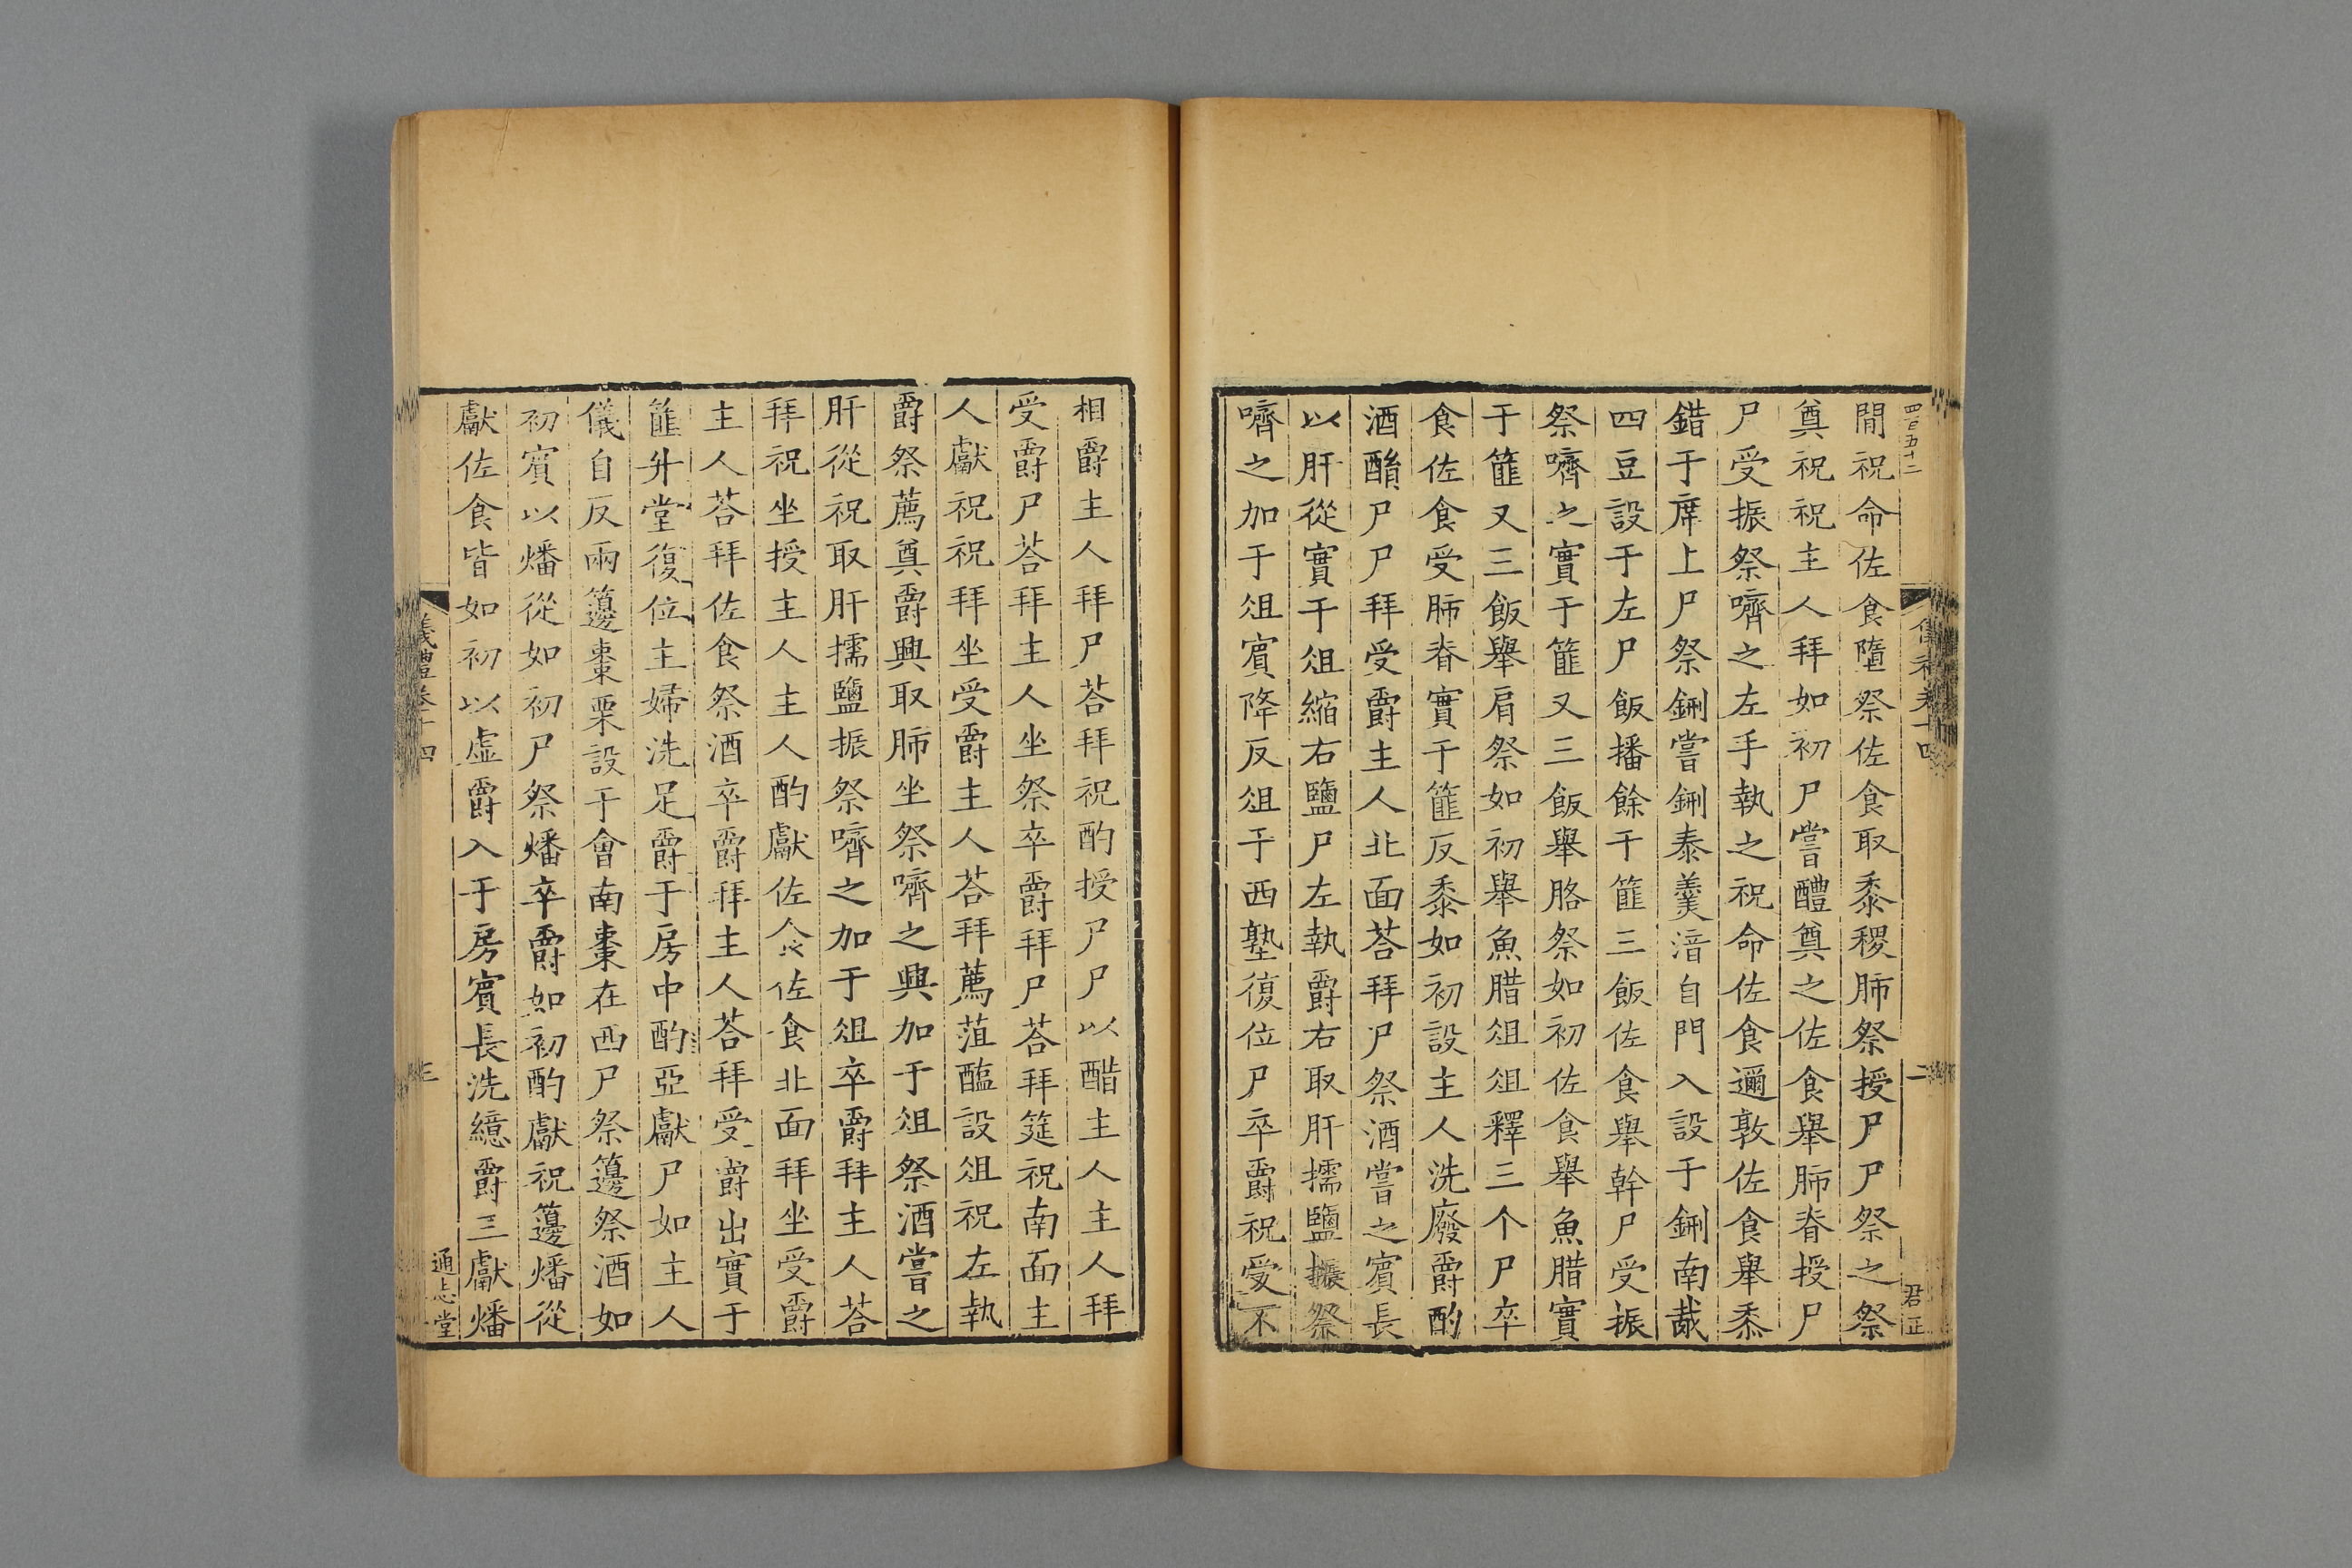 四百五十二
儀禮卷十四
二
君正
間祝命佐食墮祭佐食取黍稷肺祭授尸尸祭之祭
奠祝祝主人拜如初尸嘗醴奠之佐食舉肺脊授尸
尸受振祭嚌之左手執之祝命佐食邇敦佐食舉黍
錯于席上尸祭鉶嘗鉶泰羹湆自門入設于鉶南胾
四豆設于左尸飯播餘于篚三飯佐食舉幹尸受振
祭嚌之實于篚又三飯舉胳祭如初佐食舉魚腊實
于篚又三飯舉肩祭如初舉魚腊俎俎釋三个尸卒
食佐食受肺脊實于篚反黍如初設主人洗廢爵酌
酒酳尸尸拜受爵主人北面荅拜尸祭酒嘗之賓長
以肝從實于俎縮右鹽尸左執爵右取肝擩鹽振祭
嚌之加于俎賓降反俎于西塾復位尸卒爵祝受不
相爵主人拜尸荅拜祝酌授尸尸以醋主人主人拜
受爵尸荅拜主人坐祭卒爵拜尸荅拜筵祝南面主
人獻祝祝拜坐受爵主人荅拜薦菹醢設俎祝左執
爵祭薦奠爵興取肺坐祭嚌之興加于俎祭酒嘗之
肝從祝取肝擩鹽振祭嚌之加于俎卒爵拜主人荅
拜祝坐授主人主人酌獻佐食佐食北面拜坐受爵
主人荅拜佐食祭酒卒爵拜主人荅拜受爵出實于
篚升堂復位主婦洗足爵于房中酌亞獻尸如主人
儀自反兩籩棗栗設于會南棗在西尸祭籩祭酒如
初賓以燔從如初尸祭燔卒爵如初酌獻祝籩燔從
獻佐食皆如初以虛爵入于房賓長洗繶爵三獻燔
儀禮卷十四
三
通志堂